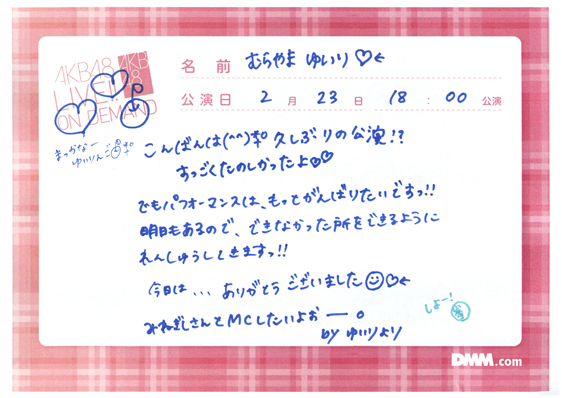 AKB48 AKB48
LIVE!!
ON DEMAND
名前 むらやま ゆいり♡←
公演日 2月23日 18:00公演
まっかなー
こんばんは(^^) 久しぶりの公演!?
すっごくたのしかったよ♡♡
でもパフォーマンスは、もっとがんばりたいですっ!!
明日もあるので、できなかった所をできるように
れんしゅうしてきますっ!!
今日は... ありがとう ございました☺♡←
みねぎしさんとMCしたいよぉー。
by ゆいりより
しよー!
DMM.com